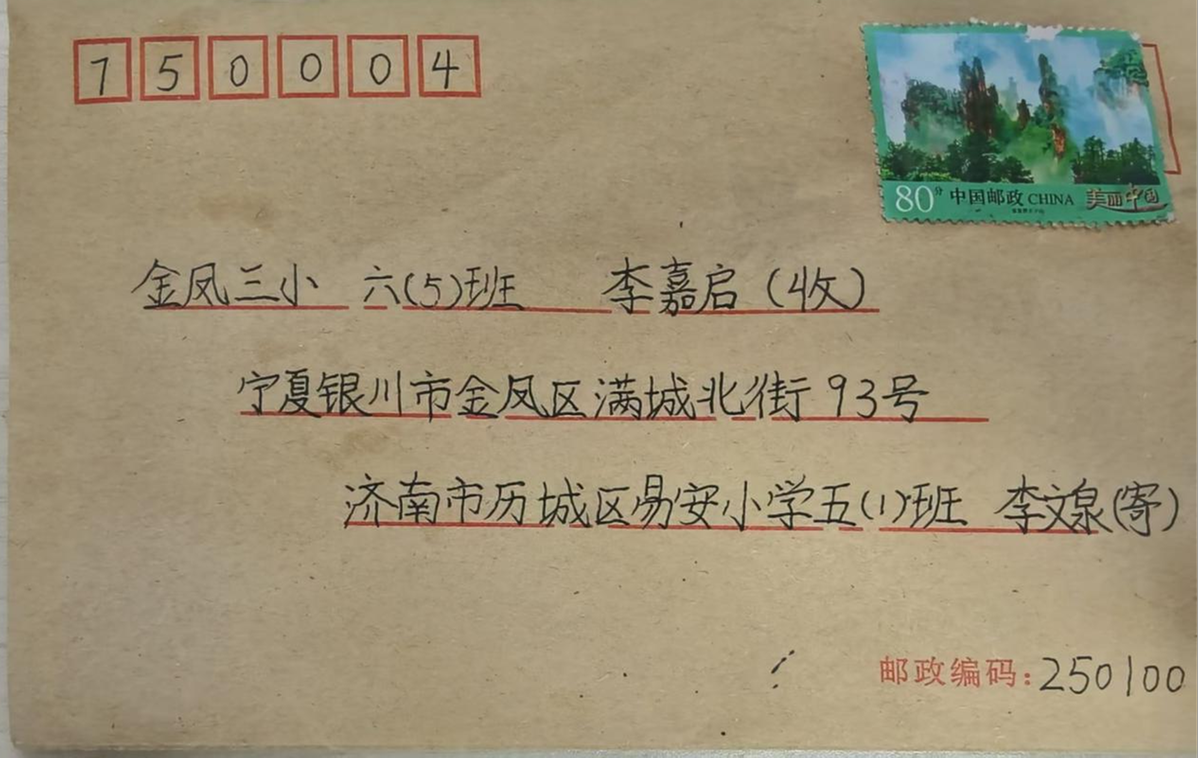 750004
80分 中国邮政 CHINA 美丽中国
金凤三小 六(5)班 李嘉启(收)
宁夏银川市金凤区满城北街93号
济南市历城区易安小学五(1)班 李文泉(寄)
邮政编码:250100